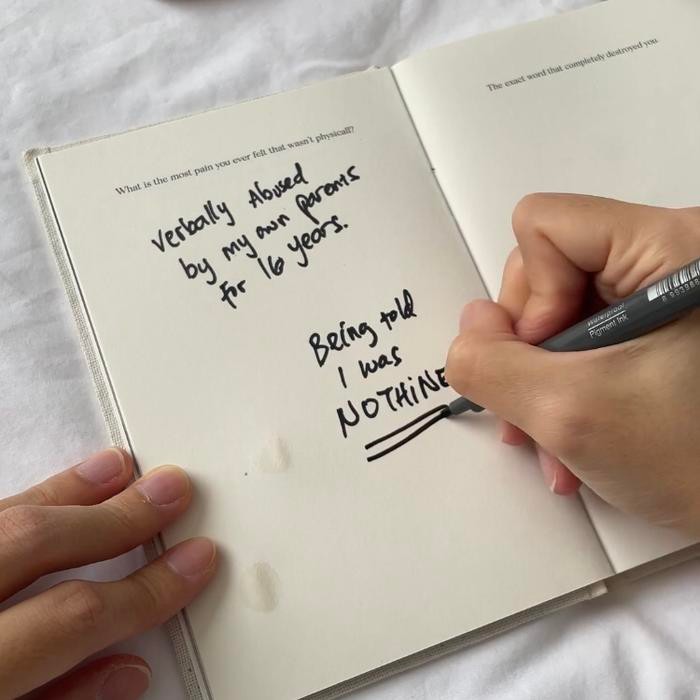 What is the most pain you ever felt that wasn't physicall?
verbally Abused
by my own parents
for 16 years.
Being told
I was
The exact word that completely destroyed you.
waterproof
Pigment Ink